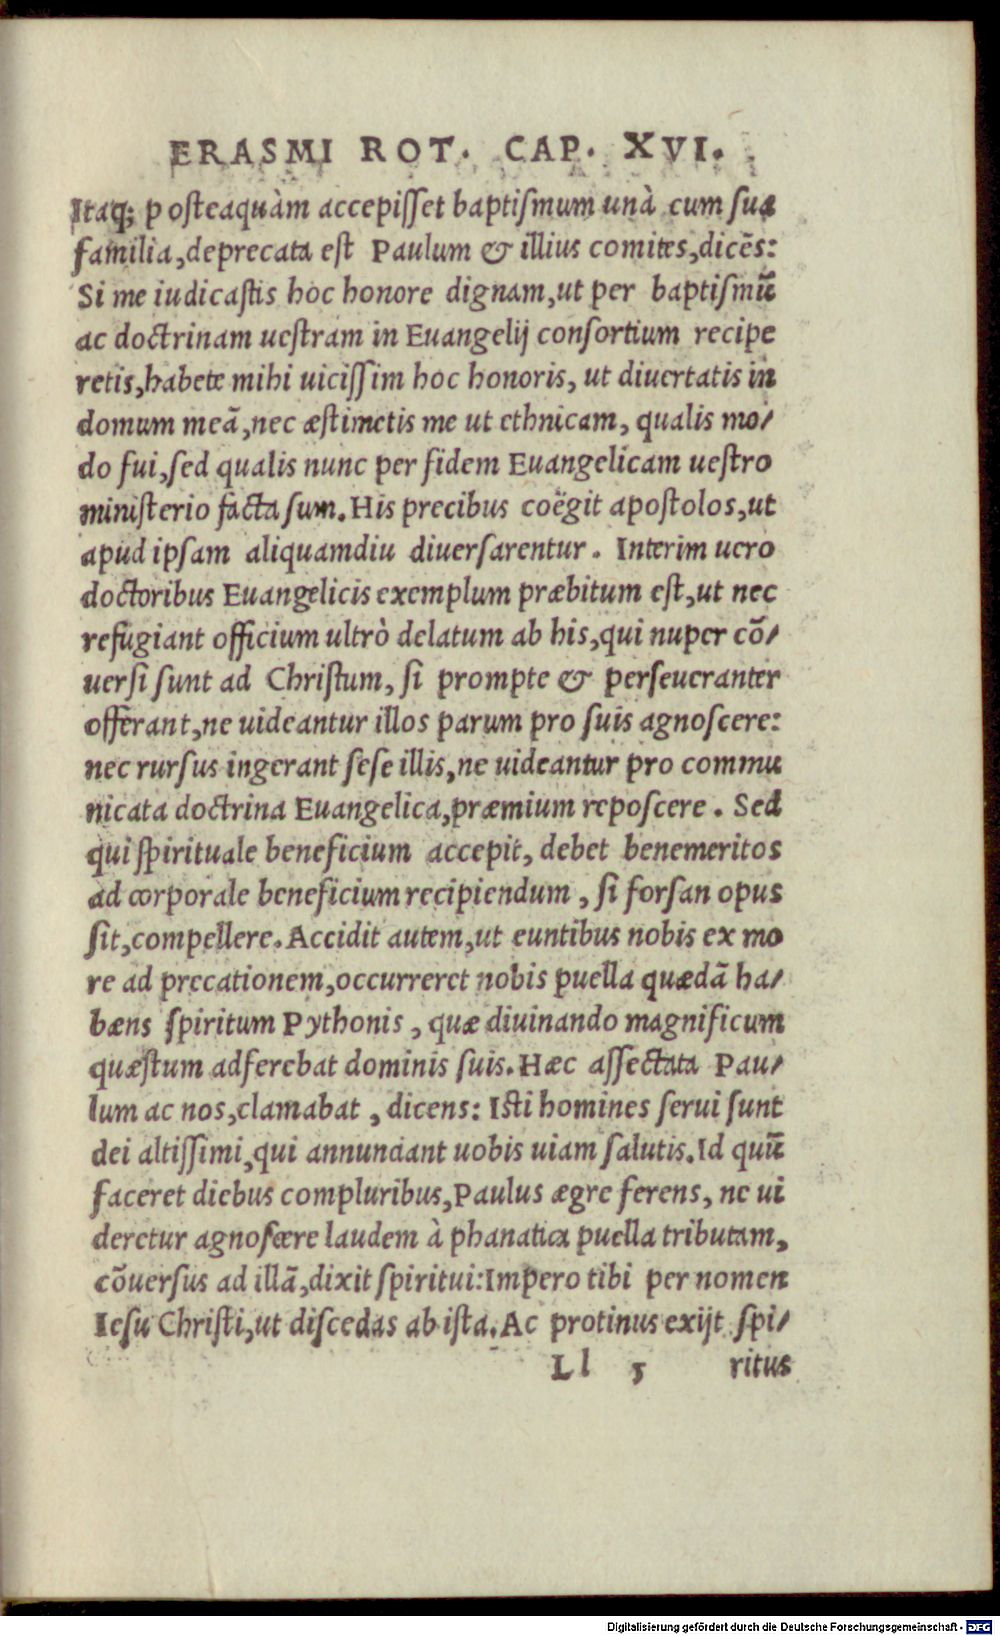 ERASMI ROT. CAP. XVI.
Itaq; posteaquàm accepisset baptismum unà cum sua
familia, deprecata est Paulum & illius comites, dicẽs:
Si me iudicastis hoc honore dignam, ut per baptismũ
ac doctrinam uestram in Euangelij consortium recipe
retis, habete mihi uicissim hoc honoris, ut diuertatis in
domum meã, nec æstimetis me ut ethnicam, qualis mo/
do fui, sed qualis nunc per fidem Euangelicam uestro
ministerio facta sum. His precibus coëgit apostolos, ut
apud ipsam aliquamdiu diuersarentur. Interim uero
doctoribus Euangelicis exemplum præbitum est, ut nec
refugiant officium ultrò delatum ab his, qui nuper cõ/
uersi sunt ad Christum, si prompte & perseueranter
offerant, ne uideantur illos parum pro suis agnoscere:
nec rursus ingerant sese illis, ne uideantur pro commu
nicata doctrina Euangelica, præmium reposcere. Sed
qui spirituale beneficium accepit, debet benemeritos
ad corporale beneficium recipiendum, si forsan opus
sit, compellere. Accidit autem, ut euntibus nobis ex mo
re ad precationem, occurreret nobis puella quædã ha/
bæns spiritum Pythonis, quæ diuinando magnificum
quæstum adferebat dominis suis. Hæc assectata Pau/
lum ac nos, clamabat, dicens: Isti homines serui sunt
dei altissimi, qui annunciant uobis uiam salutis. Id quũ
faceret diebus compluribus, Paulus ægre ferens, ne ui
deretur agnoscere laudem à phanatica puella tributam,
cõuersus ad illã, dixit spiritui: Impero tibi per nomen
Iesu Christi, ut discedas ab ista. Ac protinus exijt spi/
Ll 5 ritus
Digitalisierung gefördert durch die Deutsche Forschungsgemeinschaft - DFG